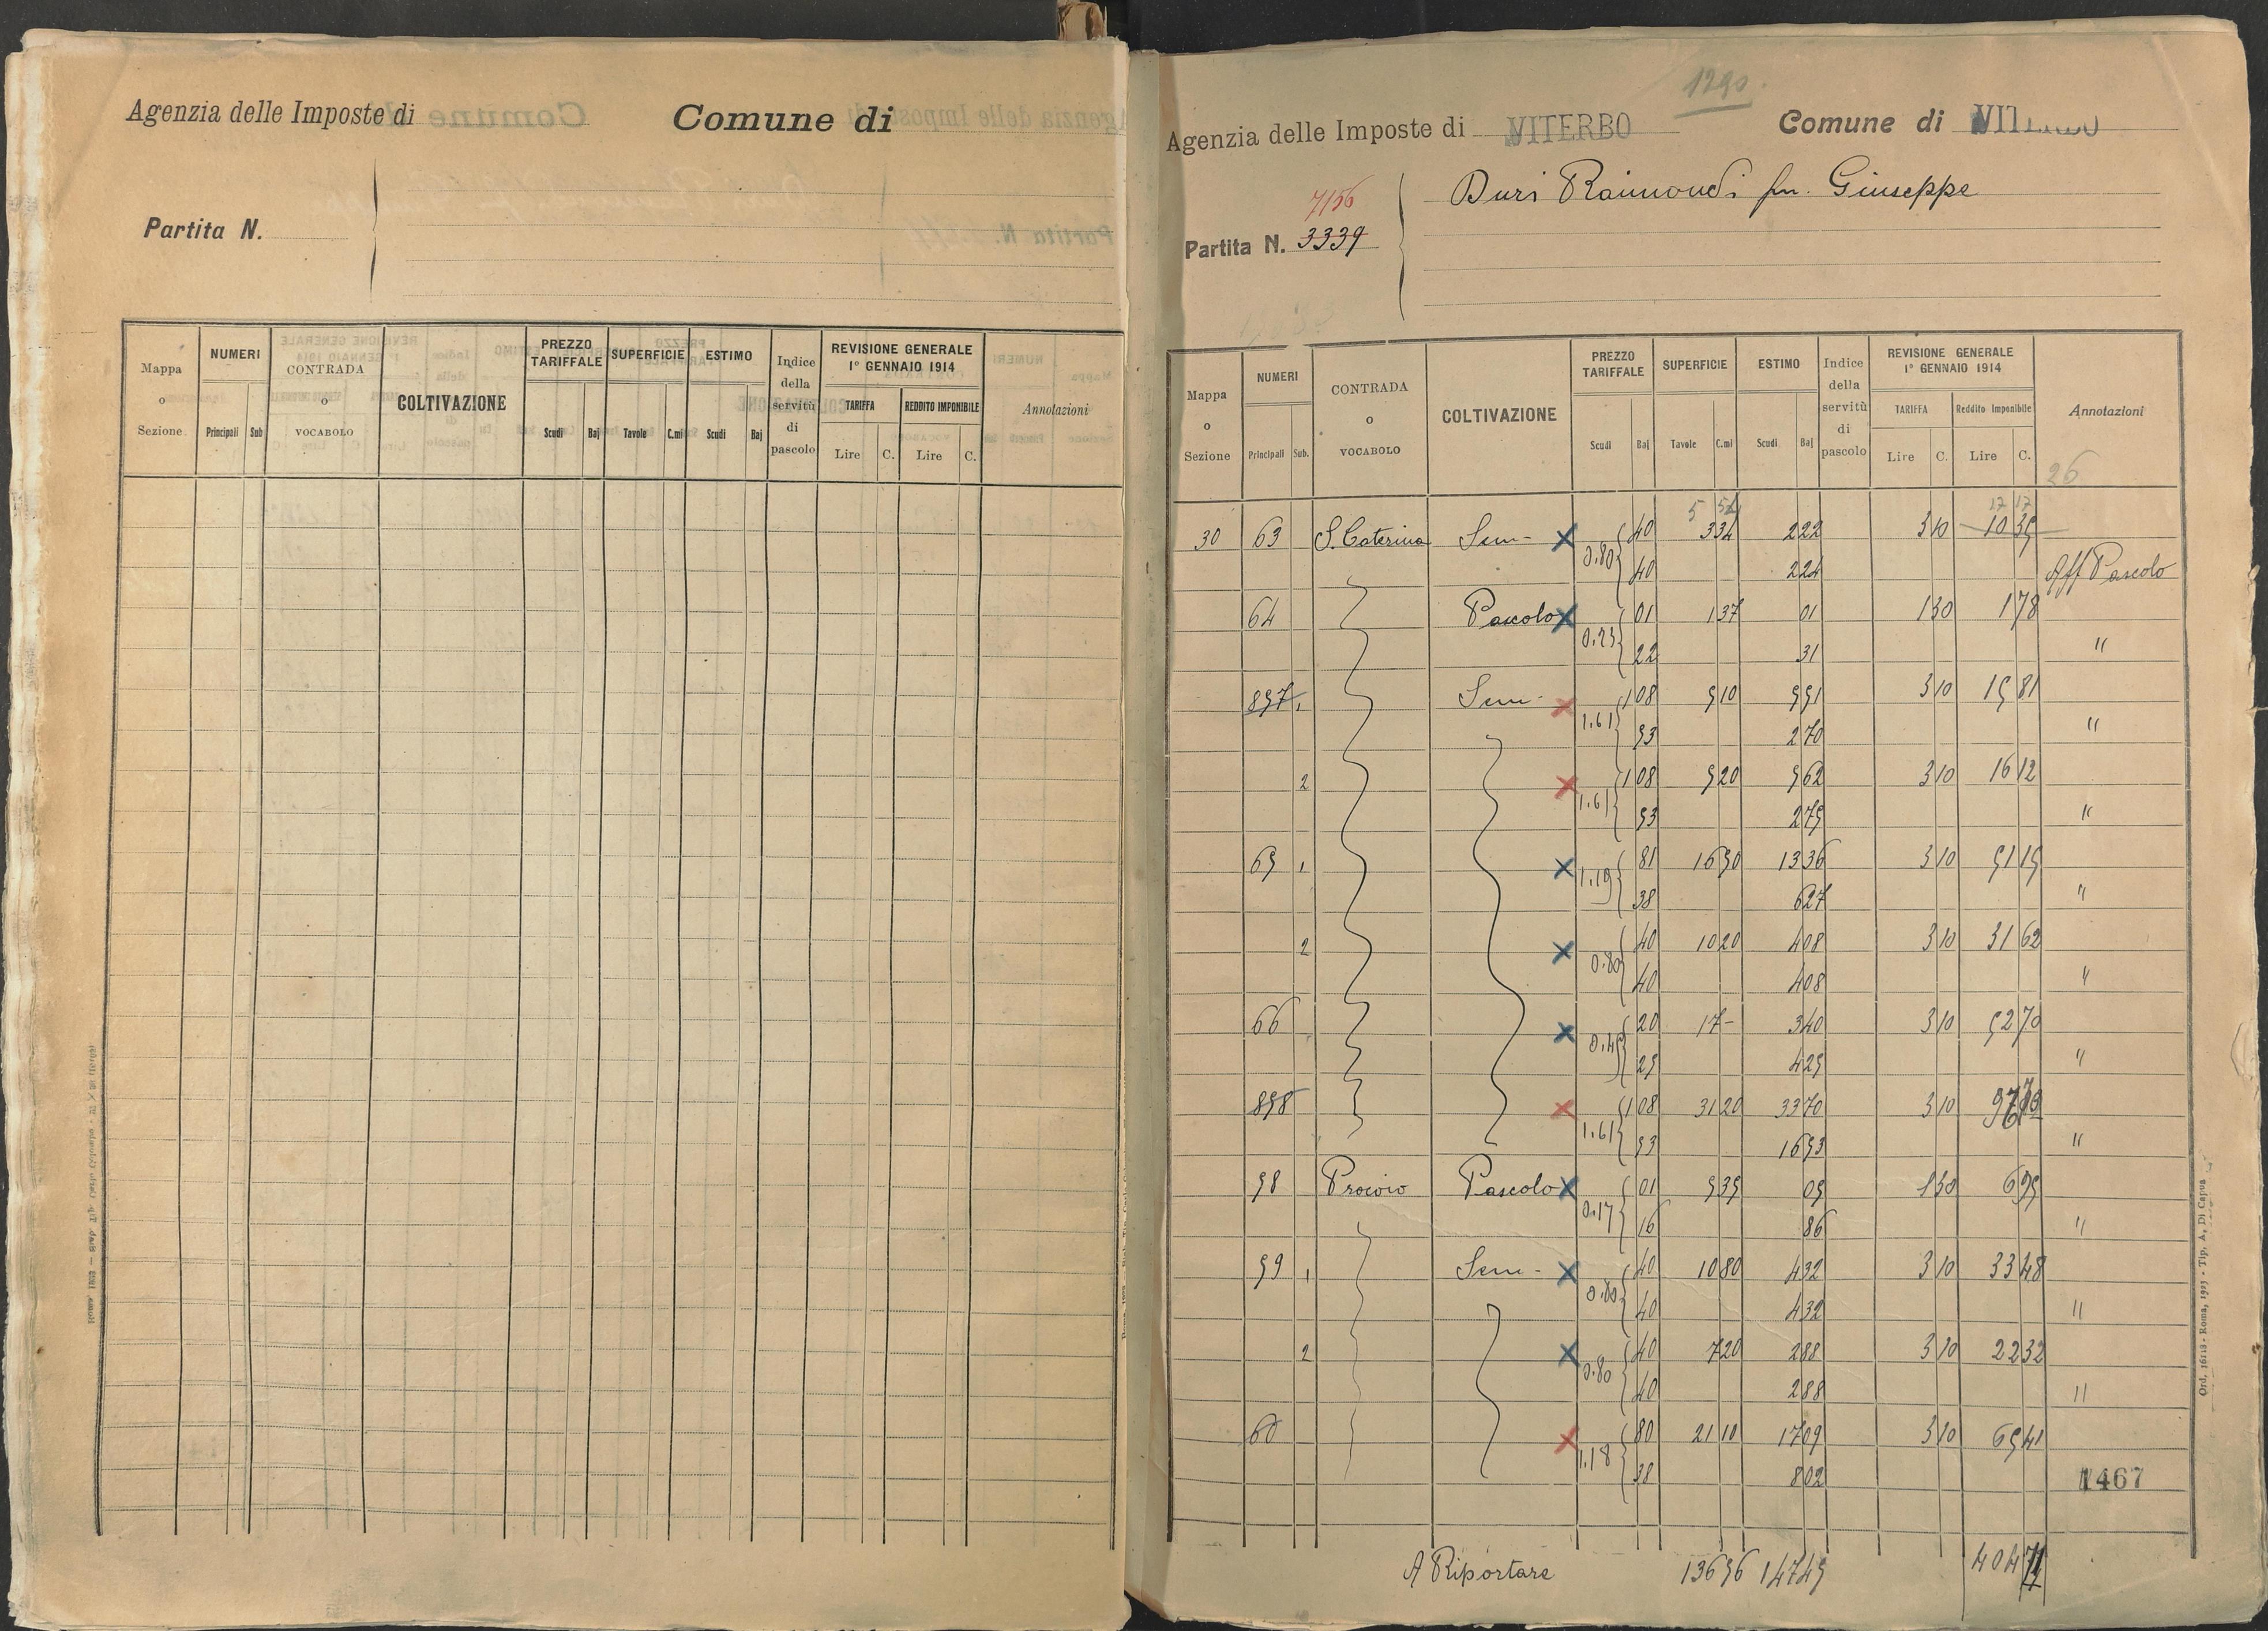 Agenzia delle Imposte di
Comune di
Partita N.
Mappa o Sezione
NUMERI
Principali Sub
CONTRADA o VOCABOLO
COLTIVAZIONE
PREZZO TARIFFALE
Scudi Baj
SUPERFICIE
Tavole C.mi
ESTIMO
Scudi Baj
Indice della servitù di pascolo
REVISIONE GENERALE
1° GENNAIO 1914
TARIFFA REDDITO IMPONIBILE
Lire C. Lire C.
Annotazioni
1290
Agenzia delle Imposte di VITERBO
Comune di VITERBO
7156
Partita N. 3339
Duri Raimondi fu. Giuseppe
Mappa o Sezione
NUMERI
Principali Sub.
CONTRADA o VOCABOLO
COLTIVAZIONE
PREZZO TARIFFALE
Scudi Baj
SUPERFICIE
Tavole C.mi
ESTIMO
Scudi Baj
Indice della servitù di pascolo
REVISIONE GENERALE
1° GENNAIO 1914
TARIFFA Reddito Imponibile
Lire C. Lire C.
Annotazioni
26
5 54 17 17
30 63 S. Caterina Sem- X 0.80 40 334 222 3 10 10 35
40 224 Aff Pascolo
64 Pascolo X 0.23 01 1 37 01 1 30 1 78
22 31 "
857 1 Sem- X 1.61 1 08 5 10 5 51 3 10 15 81
53 2 70 "
2 X 1.61 1 08 5 20 5 62 3 10 16 12
53 2 75 "
65 1 X 1.19 81 16 50 13 36 3 10 51 15
38 6 27 "
2 X 0.80 40 10 20 4 08 3 10 31 62
40 4 08 "
66 X 0.45 20 17 - 3 40 3 10 52 70
25 4 25 "
858 X 1.61 1 08 31 20 33 70 3 10
53 16 53 "
58 Procoio Pascolo X 0.17 01 5 35 05 1 30 6 95
16 86 "
59 1 Sem- X 0.80 40 10 80 4 32 3 10 33 48
40 4 32 "
2 X 0.80 40 7 20 2 88 3 10 22 32
40 2 88 "
60 X 1.18 80 21 10 17 09 3 10 65 41
38 8 02
1467
A Riportare 136 56 147 45 404
Ord. 16118 - Roma, 1925 - Tip. A. Di Capua